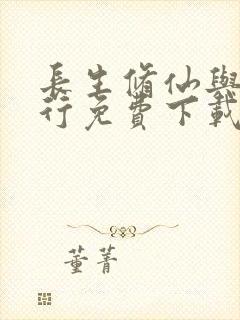 長生脩仙與
行免費下載
董菁